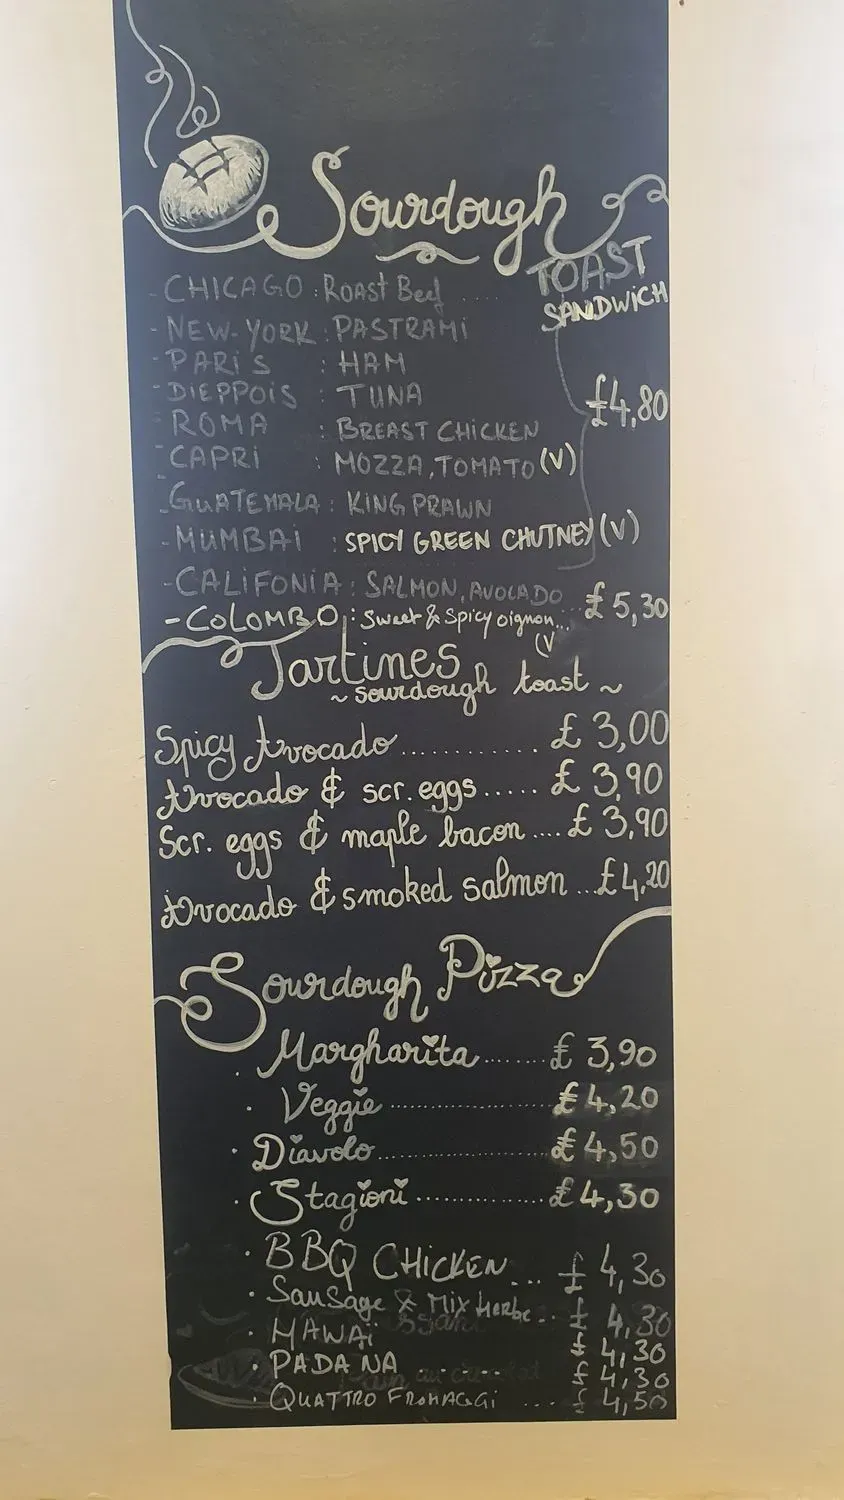 Sourdough
TOAST
SANDWICH
- CHICAGO : Roast Beef ....
- NEW-YORK : PASTRAMI
- PARIS : HAM
- DIEPPOIS : TUNA
£4,80
- ROMA : BREAST CHICKEN
- CAPRI : MOZZA, TOMATO (V)
- GUATEMALA : KING PRAWN
- MUMBAI : SPICY GREEN CHUTNEY (V)
- CALIFONIA : SALMON, AVOCADO ... £5,30
- COLOMBO : Sweet & Spicy oignon...
(V
Tartines
~ sourdough toast ~
Spicy Avocado ............ £ 3,00
Avocado & scr. eggs ..... £ 3,90
Scr. eggs & maple bacon .... £ 3,90
Avocado & smoked salmon ... £4,20
Sourdough Pizza
. Margharita ....... £ 3,90
. Veggie .................... £ 4,20
. Diavolo .................... £ 4,50
. Stagioni ................ £4,30
. BBQ CHICKEN ... £ 4,30
. Sausage & Mix Herbe .. £ 4,30
. HAWAÏ £ 4,30
. PADANA ...... £ 4,30
. QUATTRO FROMAGGI ... £ 4,50